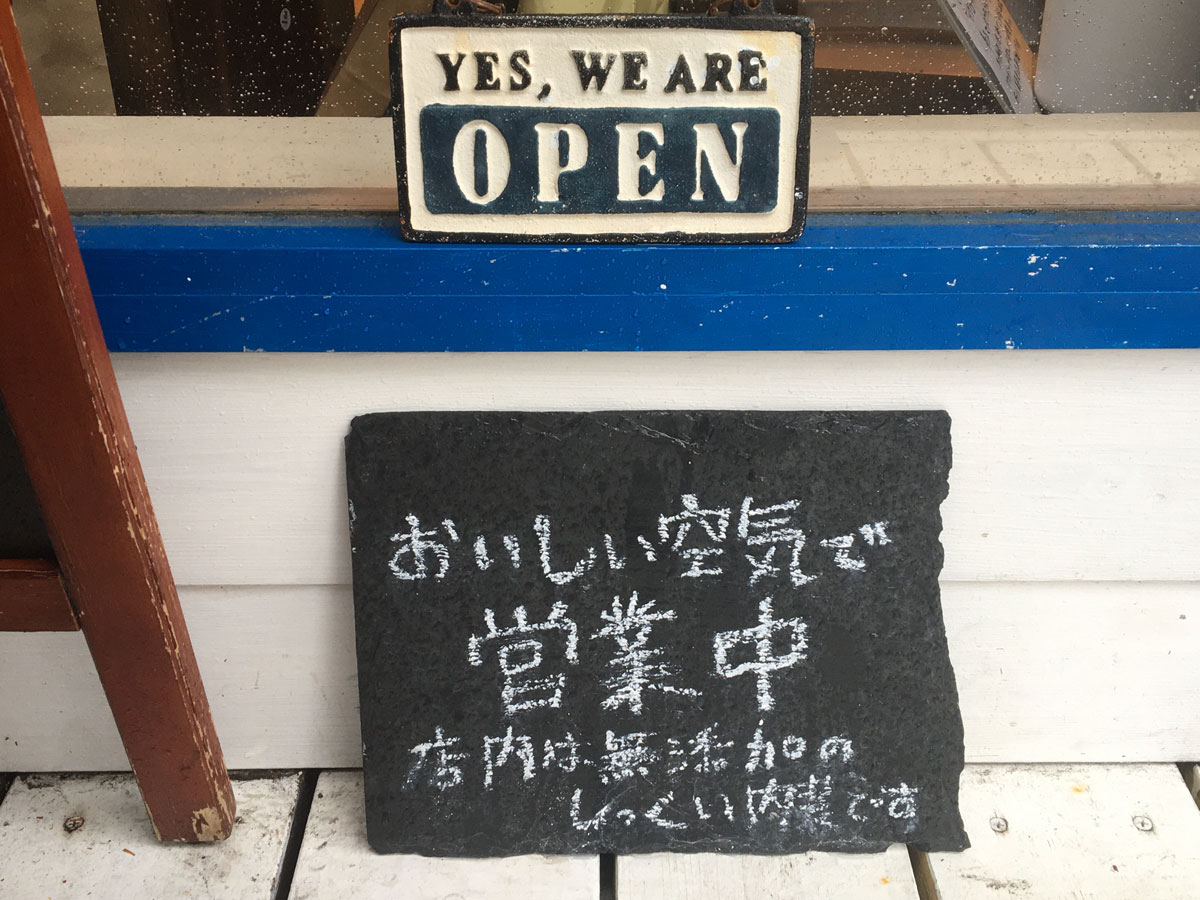 YES, WE ARE
OPEN
おいしい空気で
営業中
店内は無添加の
しっくい内装です